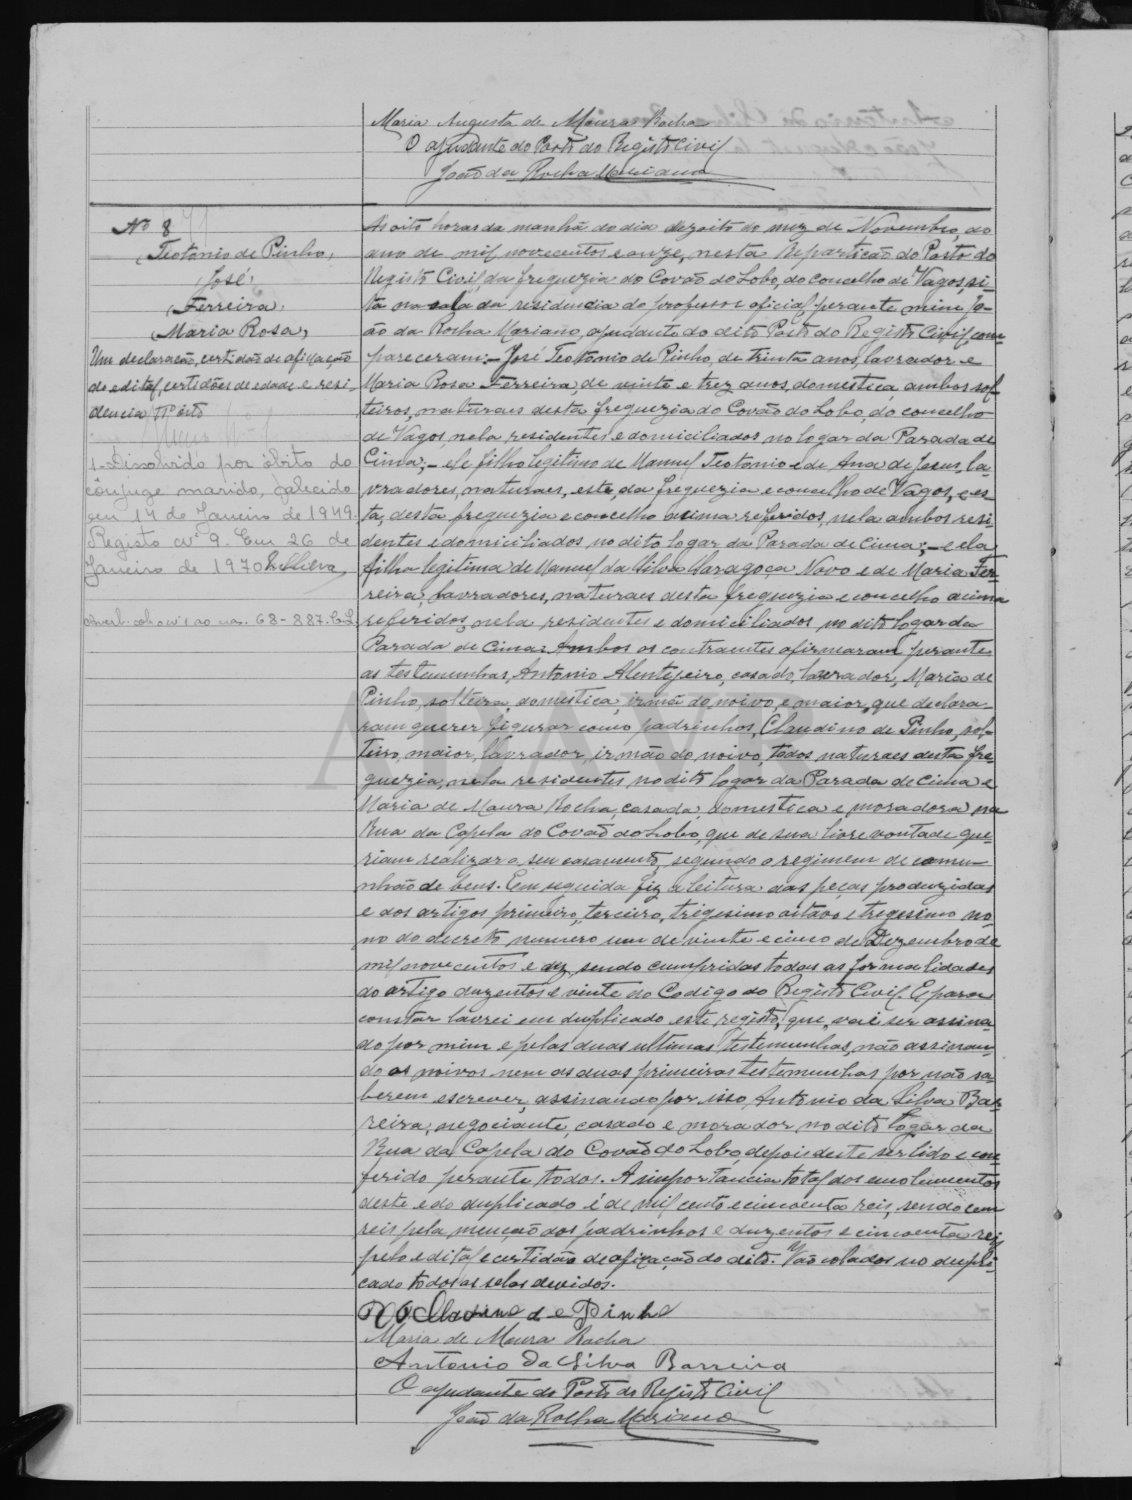 Maria Augusta de Moura Rocha
O ajudante do Posto do Registo Civil
João da Rocha Mariano
Nº 8
Teotonio de Pinho,
José,
Ferreira,
Maria Rosa,
Um declaração, certidão de afixação
do edital, certidões de edade e resi-
dencia, nº oito
1- Dissolvido por óbito do
cônjuge marido, falecido
em 14 de Janeiro de 1949.
Registo nº 9. Em 26 de
Janeiro de 1970
68-887.
Ás oito horas da manhã do dia dezoito do mez de Novembro, do
ano de mil novecentos e onze, nesta Repartição do Posto do
Registo Civil, da freguezia do Covão do Lobo, do concelho de Vagos, si-
ta na sala da residencia do professor oficial, perante mim, Jo-
ão da Rocha Mariano, ajudante do dito Posto do Registo Civil, com-
pareceram:- José Teotonio de Pinho, de trinta anos, lavrador e
Maria Rosa Ferreira, de vinte e trez anos, domestica, ambos sol-
teiros, naturaes desta freguezia do Covão do Lobo, do concelho
de Vagos, nela residentes e domiciliados no logar da Parada de
Cima;- ele filho legitimo de Manuel Teotonio e de Ana de Jesus, la-
vradores, naturaes, este, da freguezia e concelho de Vagos, e es-
ta, desta freguezia e concelho acima referidos, nela ambos resi-
dentes e domiciliados no dito logar da Parada de Cima;- e ela
filha legitima de Manuel da Silva Saragoça Novo e de Maria Fer-
reira, lavradores, naturaes desta freguezia e concelho acima
referidos, nela residentes e domiciliados no dito logar da
Parada de Cima. Ambos os contraentes afirmaram perante
as testemunhas, Antonio Alentejeiro, casado, lavrador, Maria de
Pinho, solteira, domestica, irmã do noivo, e maior, que declara-
ram querer figurar como padrinhos, Claudino de Pinho, sol-
teiro, maior, lavrador, irmão do noivo, todos naturaes desta fre-
guezia, nela residentes no dito logar da Parada de Cima e
Maria de Moura Rocha, casada, domestica e moradora na
Rua da Capela do Covão do Lobo, que de sua livre vontade que-
riam realizar o seu casamento, segundo o regimen de comu-
nhão de bens. Em seguida fiz a leitura das peças produzidas
e dos artigos primeiro, terceiro, trigesimo oitavo e trigesimo no-
no do decreto numero um de vinte e cinco de Dezembro de
mil novecentos e dez, sendo cumpridas todas as formalidades
do artigo duzentos e vinte no Codigo do Registo Civil. E para
constar lavrei em duplicado este registo, que vai ser assina-
do por mim e pelas duas ultimas testemunhas, não assinan-
do os noivos nem as duas primeiras testemunhas por não sa-
berem escrever, assinando por isso Antonio da Silva Bar-
reira, negociante, casado e morador no dito logar da
Rua da Capela do Covão do Lobo, depois deste ser lido e con-
ferido perante todos. A importancia total dos emolumentos
deste e do duplicado é de mil cento e cincoenta reis, sendo cem
reis pela menção dos padrinhos e duzentos e cincoenta reis
pelo edital e certidão de afixação do dito. Vão colados no dupli-
cado todos os selos devidos.
Claudino de Pinho
Maria de Moura Rocha
Antonio da Silva Barreira
O ajudante do Posto do Registo Civil
João da Rocha Mariano